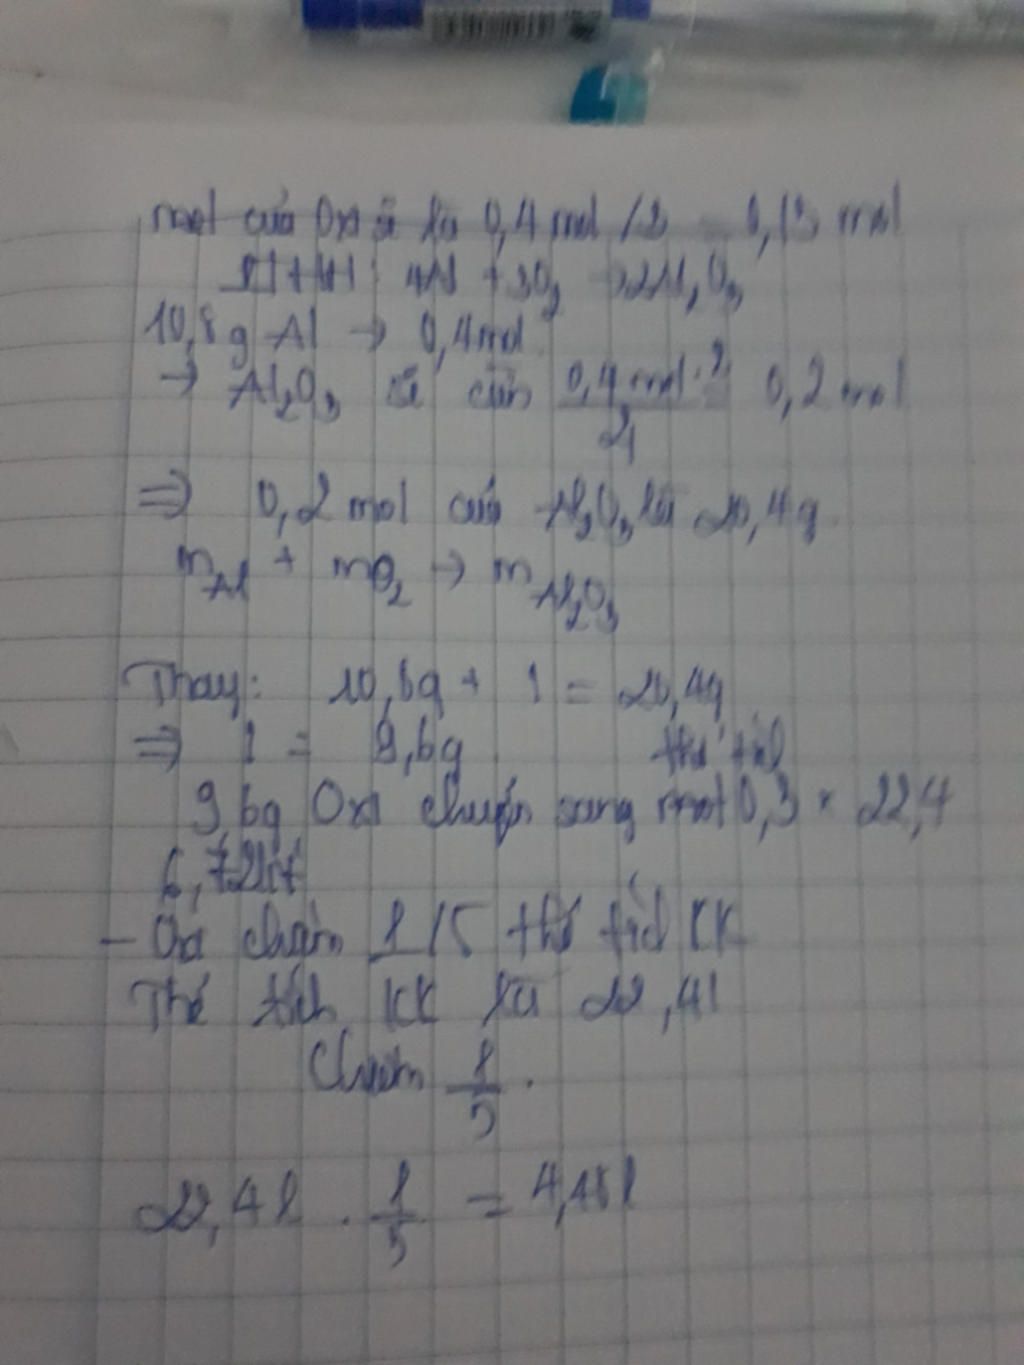 mol của Oxi sẽ là 0,4 mol /3 = 0,13 mol
PTHH: 4Al + 3O2 → 2Al2O3
10,8g Al → 0,4mol
→ Al2O3 sẽ cần 0,4 mol . 2 / 4 = 0,2 mol
⇒ 0,2 mol của Al2O3 là 20,4g.
mAl + mO2 → mAl2O3
Thay: 10,8g + 1 = 20,4g
⇒ 1 = 9,6g
thể tích
9,6g Oxi chuyển sang mol 0,3 × 22,4
6,72lít
- Oxi chiếm 1/5 thể tích KK
Thể tích KK là 22,4l
Chiếm 1/5.
22,4l . 1/5 = 4,48l